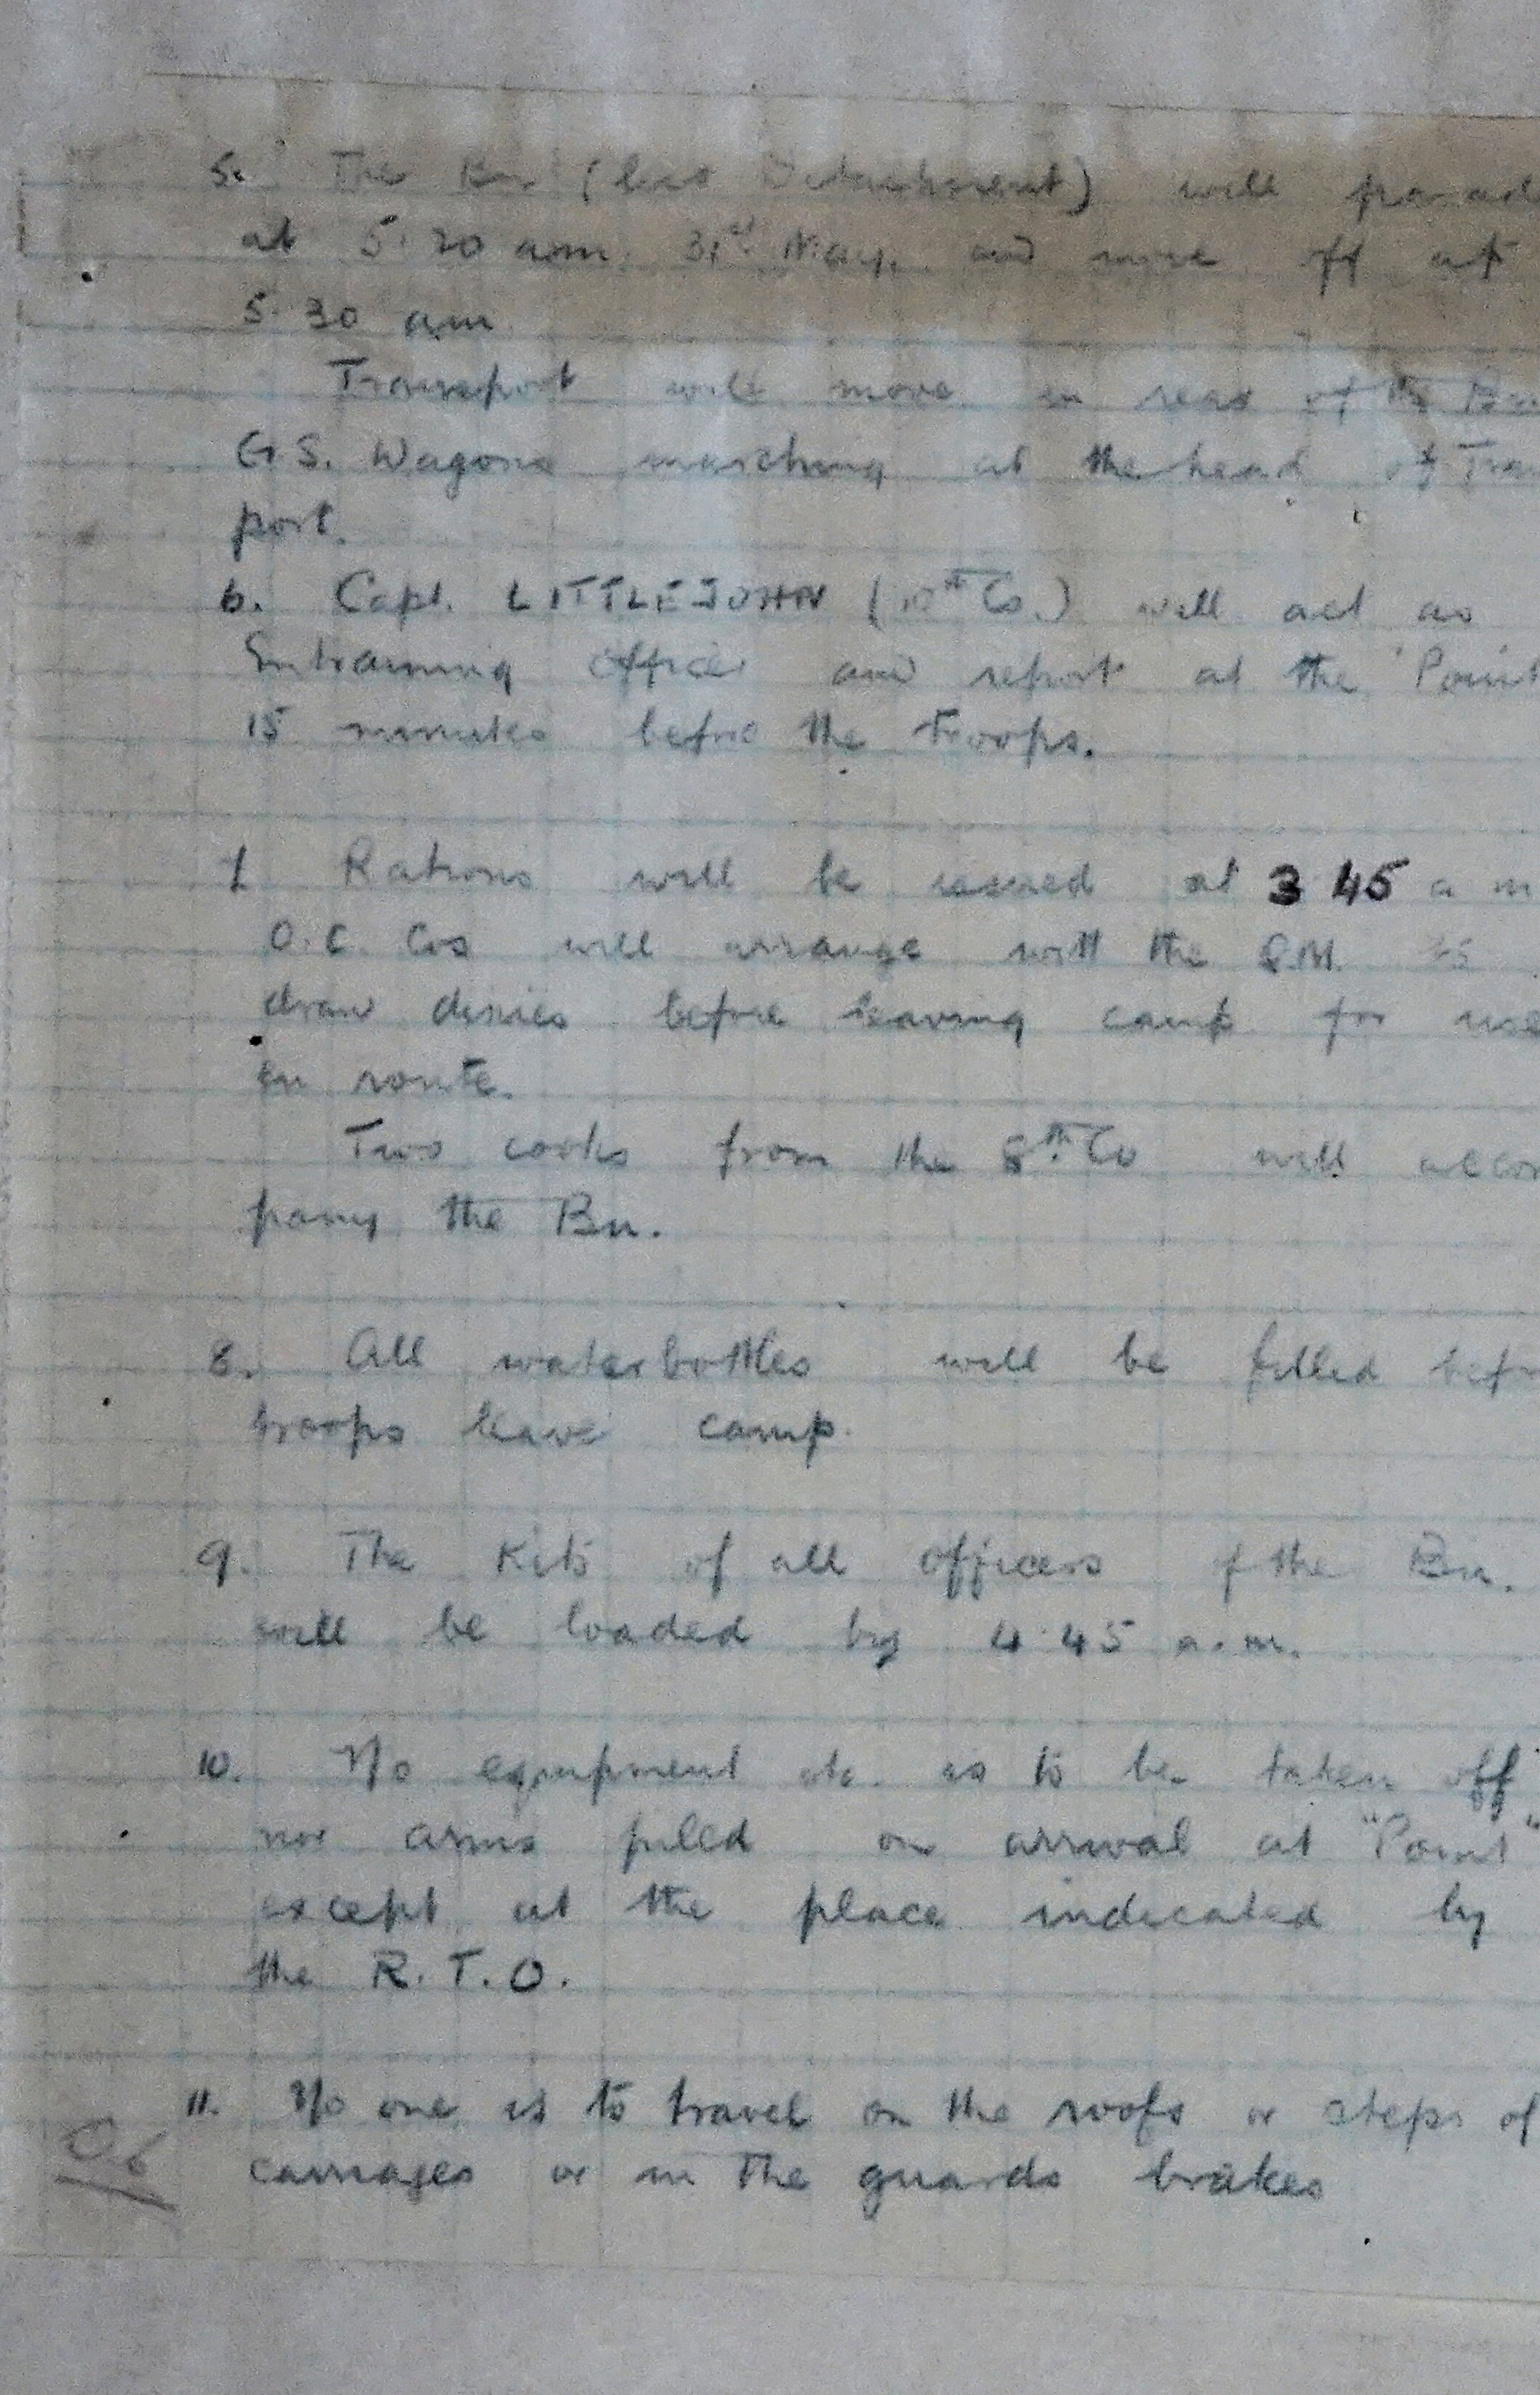 5. The Bn (less Detachment) will parad
at 5.20 am. 31st May. and move off at
5.30 am
Transport will move in rear of the Bn
G.S. Wagons marching at the head of Tra
port.
6. Capt. LITTLEJOHN (10th Co.) will act as
Entraining Officer and report at the 'Point
15 minutes before the troops.
7. Rations will be issued at 3 45 a m
O.C. Cos will arrange with the Q.M. to
draw dixies before leaving camp for use
en route.
Two cooks from the 8th Co will accom
pany the Bn.
8. All waterbottles will be filled befr
troops leave camp.
9. The Kits of all officers of the Bn.
will be loaded by 4.45 a.m.
10. No equipment etc. is to be taken off
nor arms piled on arrival at "Point"
except at the place indicated by
the R.T.O.
11. No one is to travel on the roofs or steps of
carriages or in the guards brakes